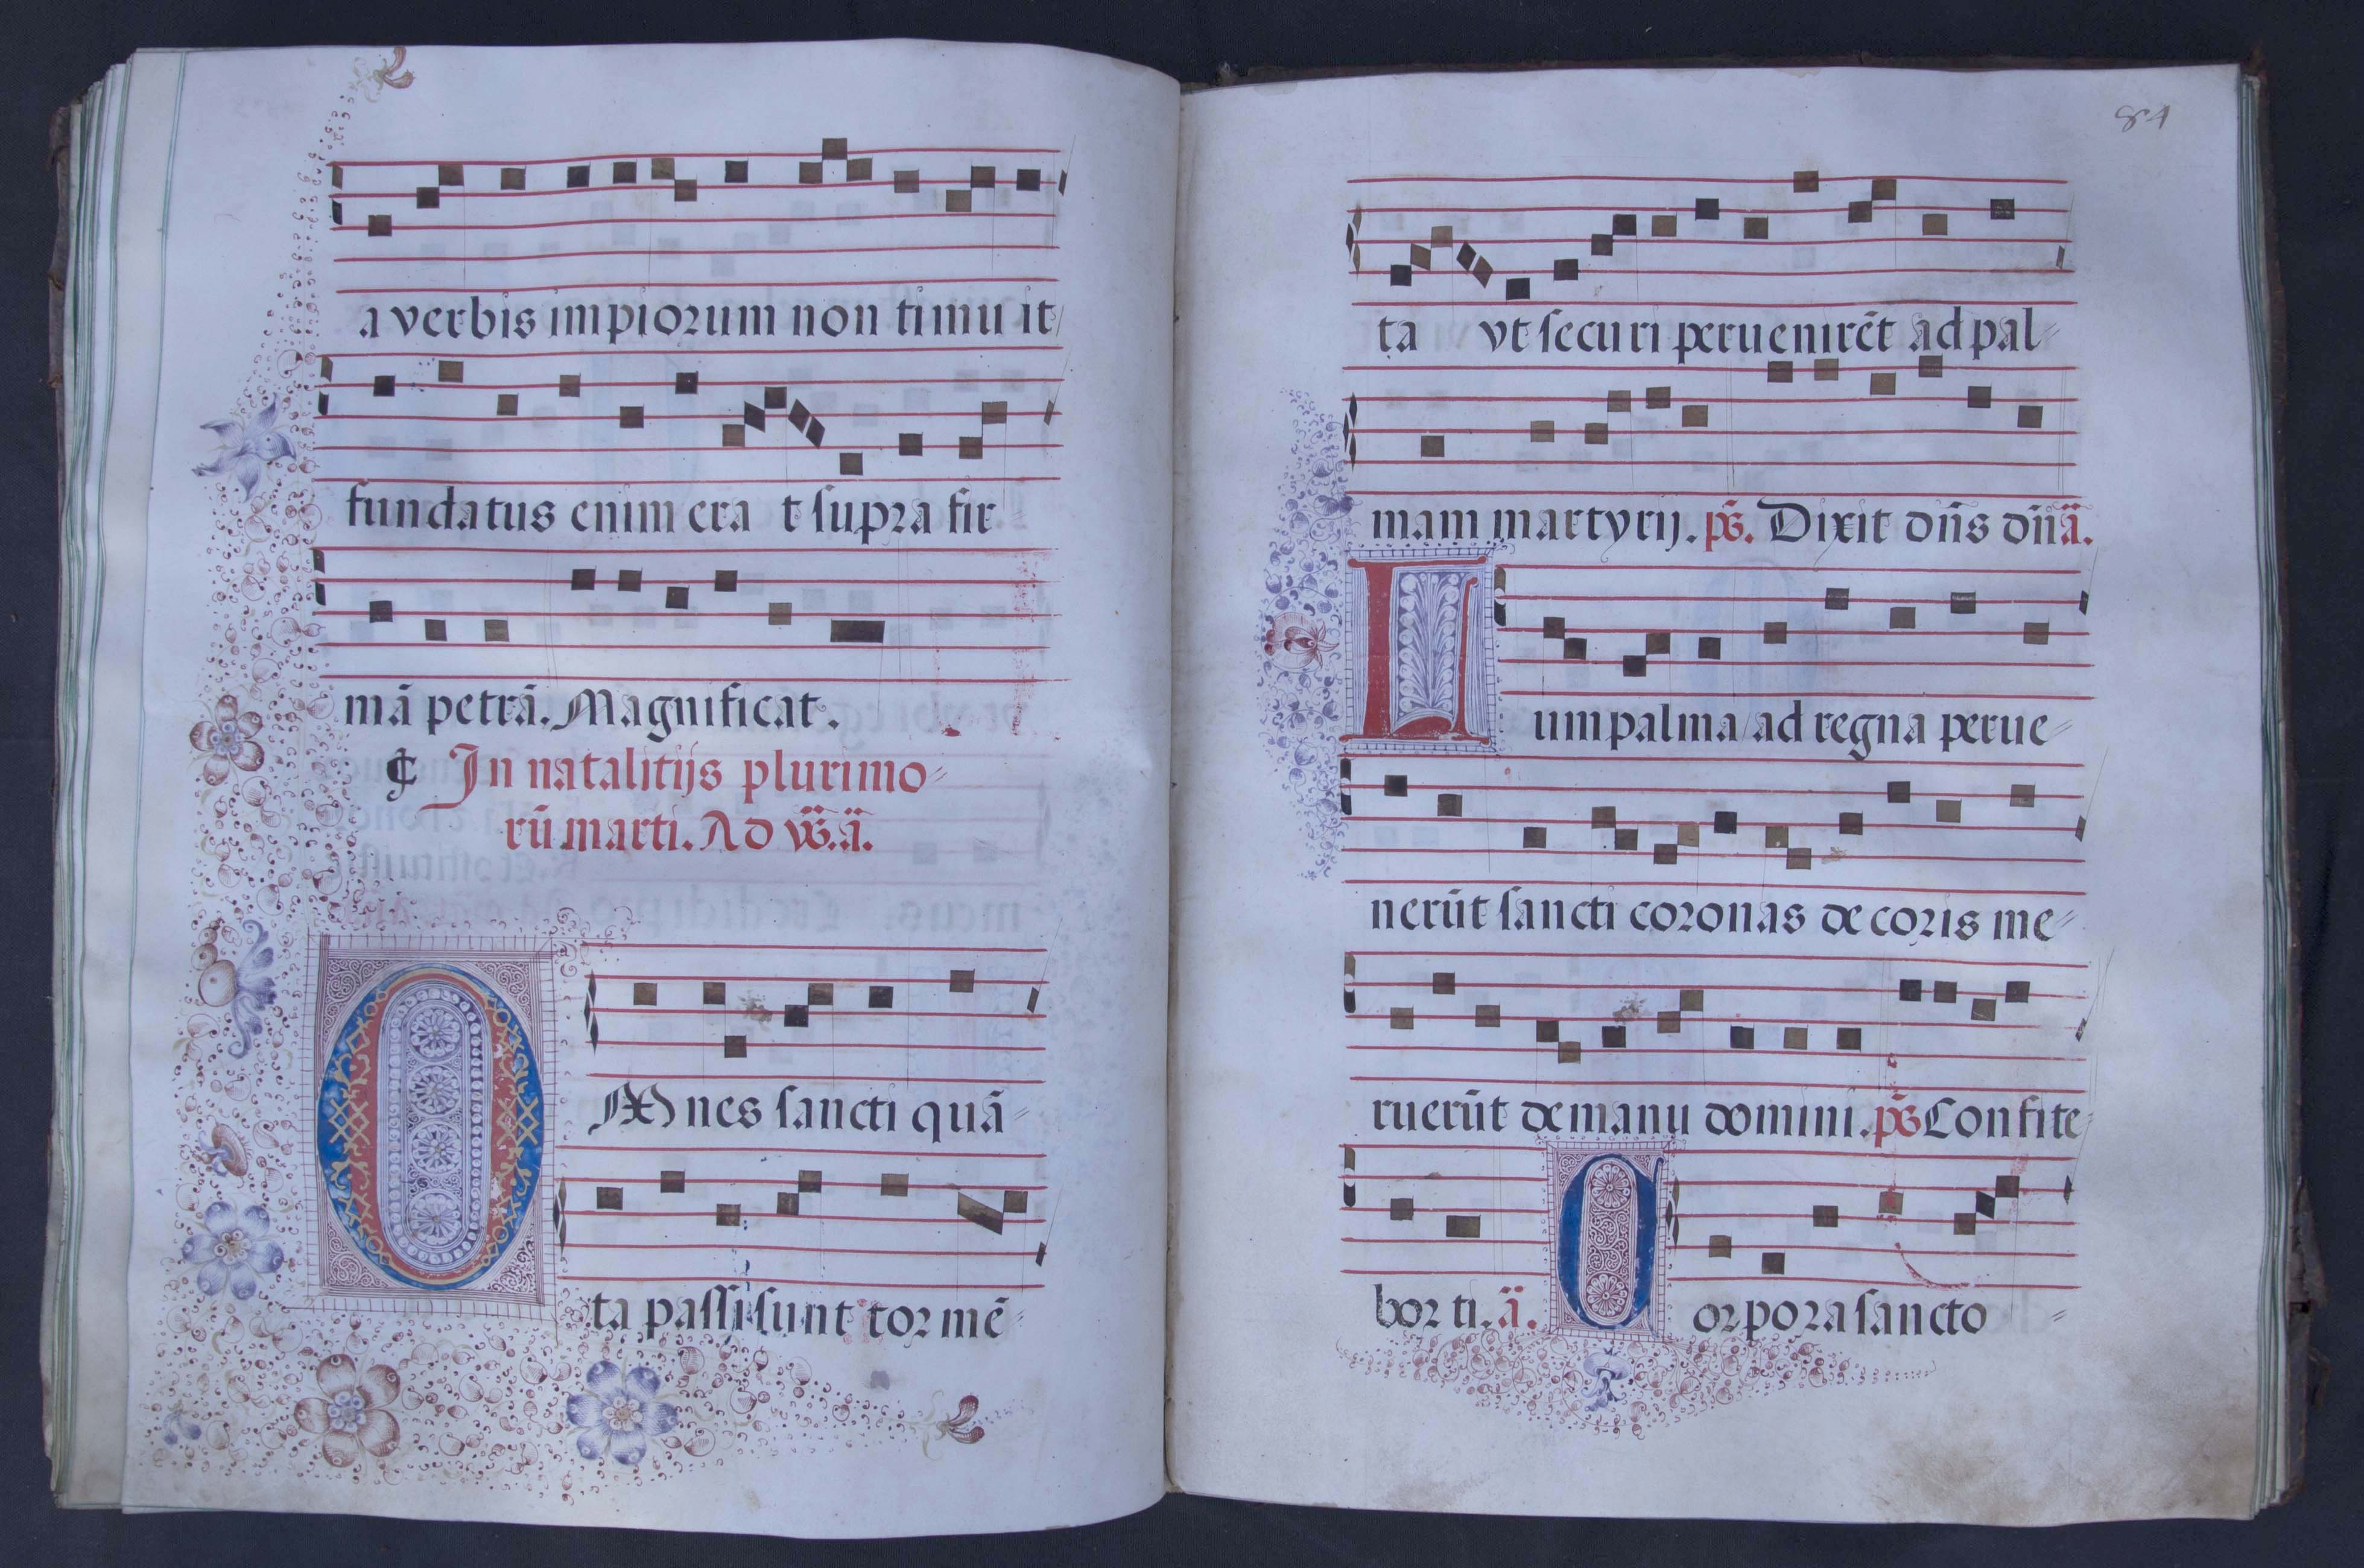 a verbis impiorum non timu it
fundatus enim era t supra fir
mā petrā. Magnificat.
¶ In natalitijs plurimo
rū marti. Ad v̄s. ā.
OMnes sancti quā
ta passi sunt tormē
84
ta vt securi peruenirēt ad pal
mam martyrij. ps̄. Dixit dn̄s dn̄ā.
Cum palma ad regna perue
nerūt sancti coronas decoris me
ruerūt de manu domini. ps̄ Confite
bor ti. ā. Corpora sancto